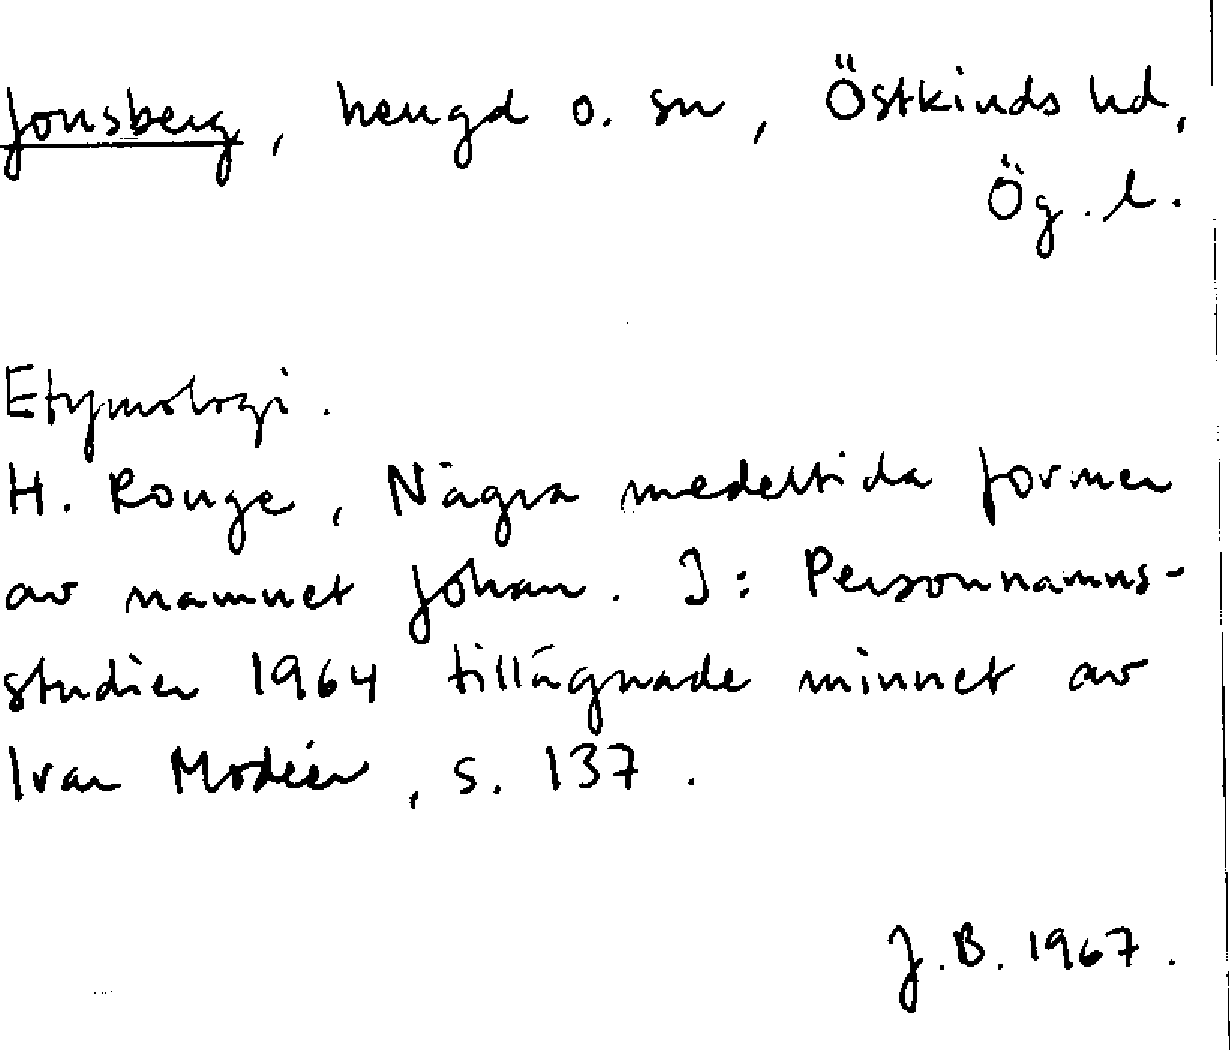 Jonsberg, herrgd o. sn, Östkinds hd,
Ög. l.
Etymologi.
H. Ronge, Några medeltida former
av namnet Johan. I: Personnamns-
studier 1964 tillägnade minnet av
Ivar Modéer, s. 137.
J.B. 1967.